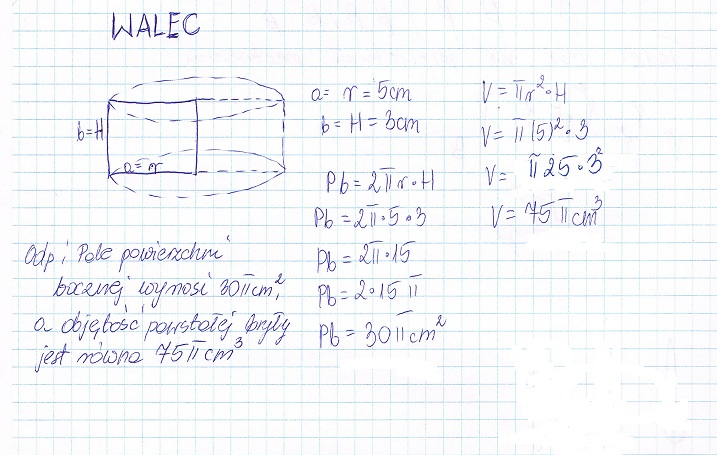 WALEC
b=H
a=r
a= r = 5cm
b = H = 3cm
Pb = 2πr·H
Pb = 2π·5·3
Pb = 2π·15
Pb = 2·15 π
Pb = 30πcm²
V = πr²·H
V = π(5)²·3
V = π25·3²
V = 75πcm³
Odp: Pole powierzchni
bocznej wynosi 30πcm²,
a objętość powstałej bryły
jest równa 75πcm³